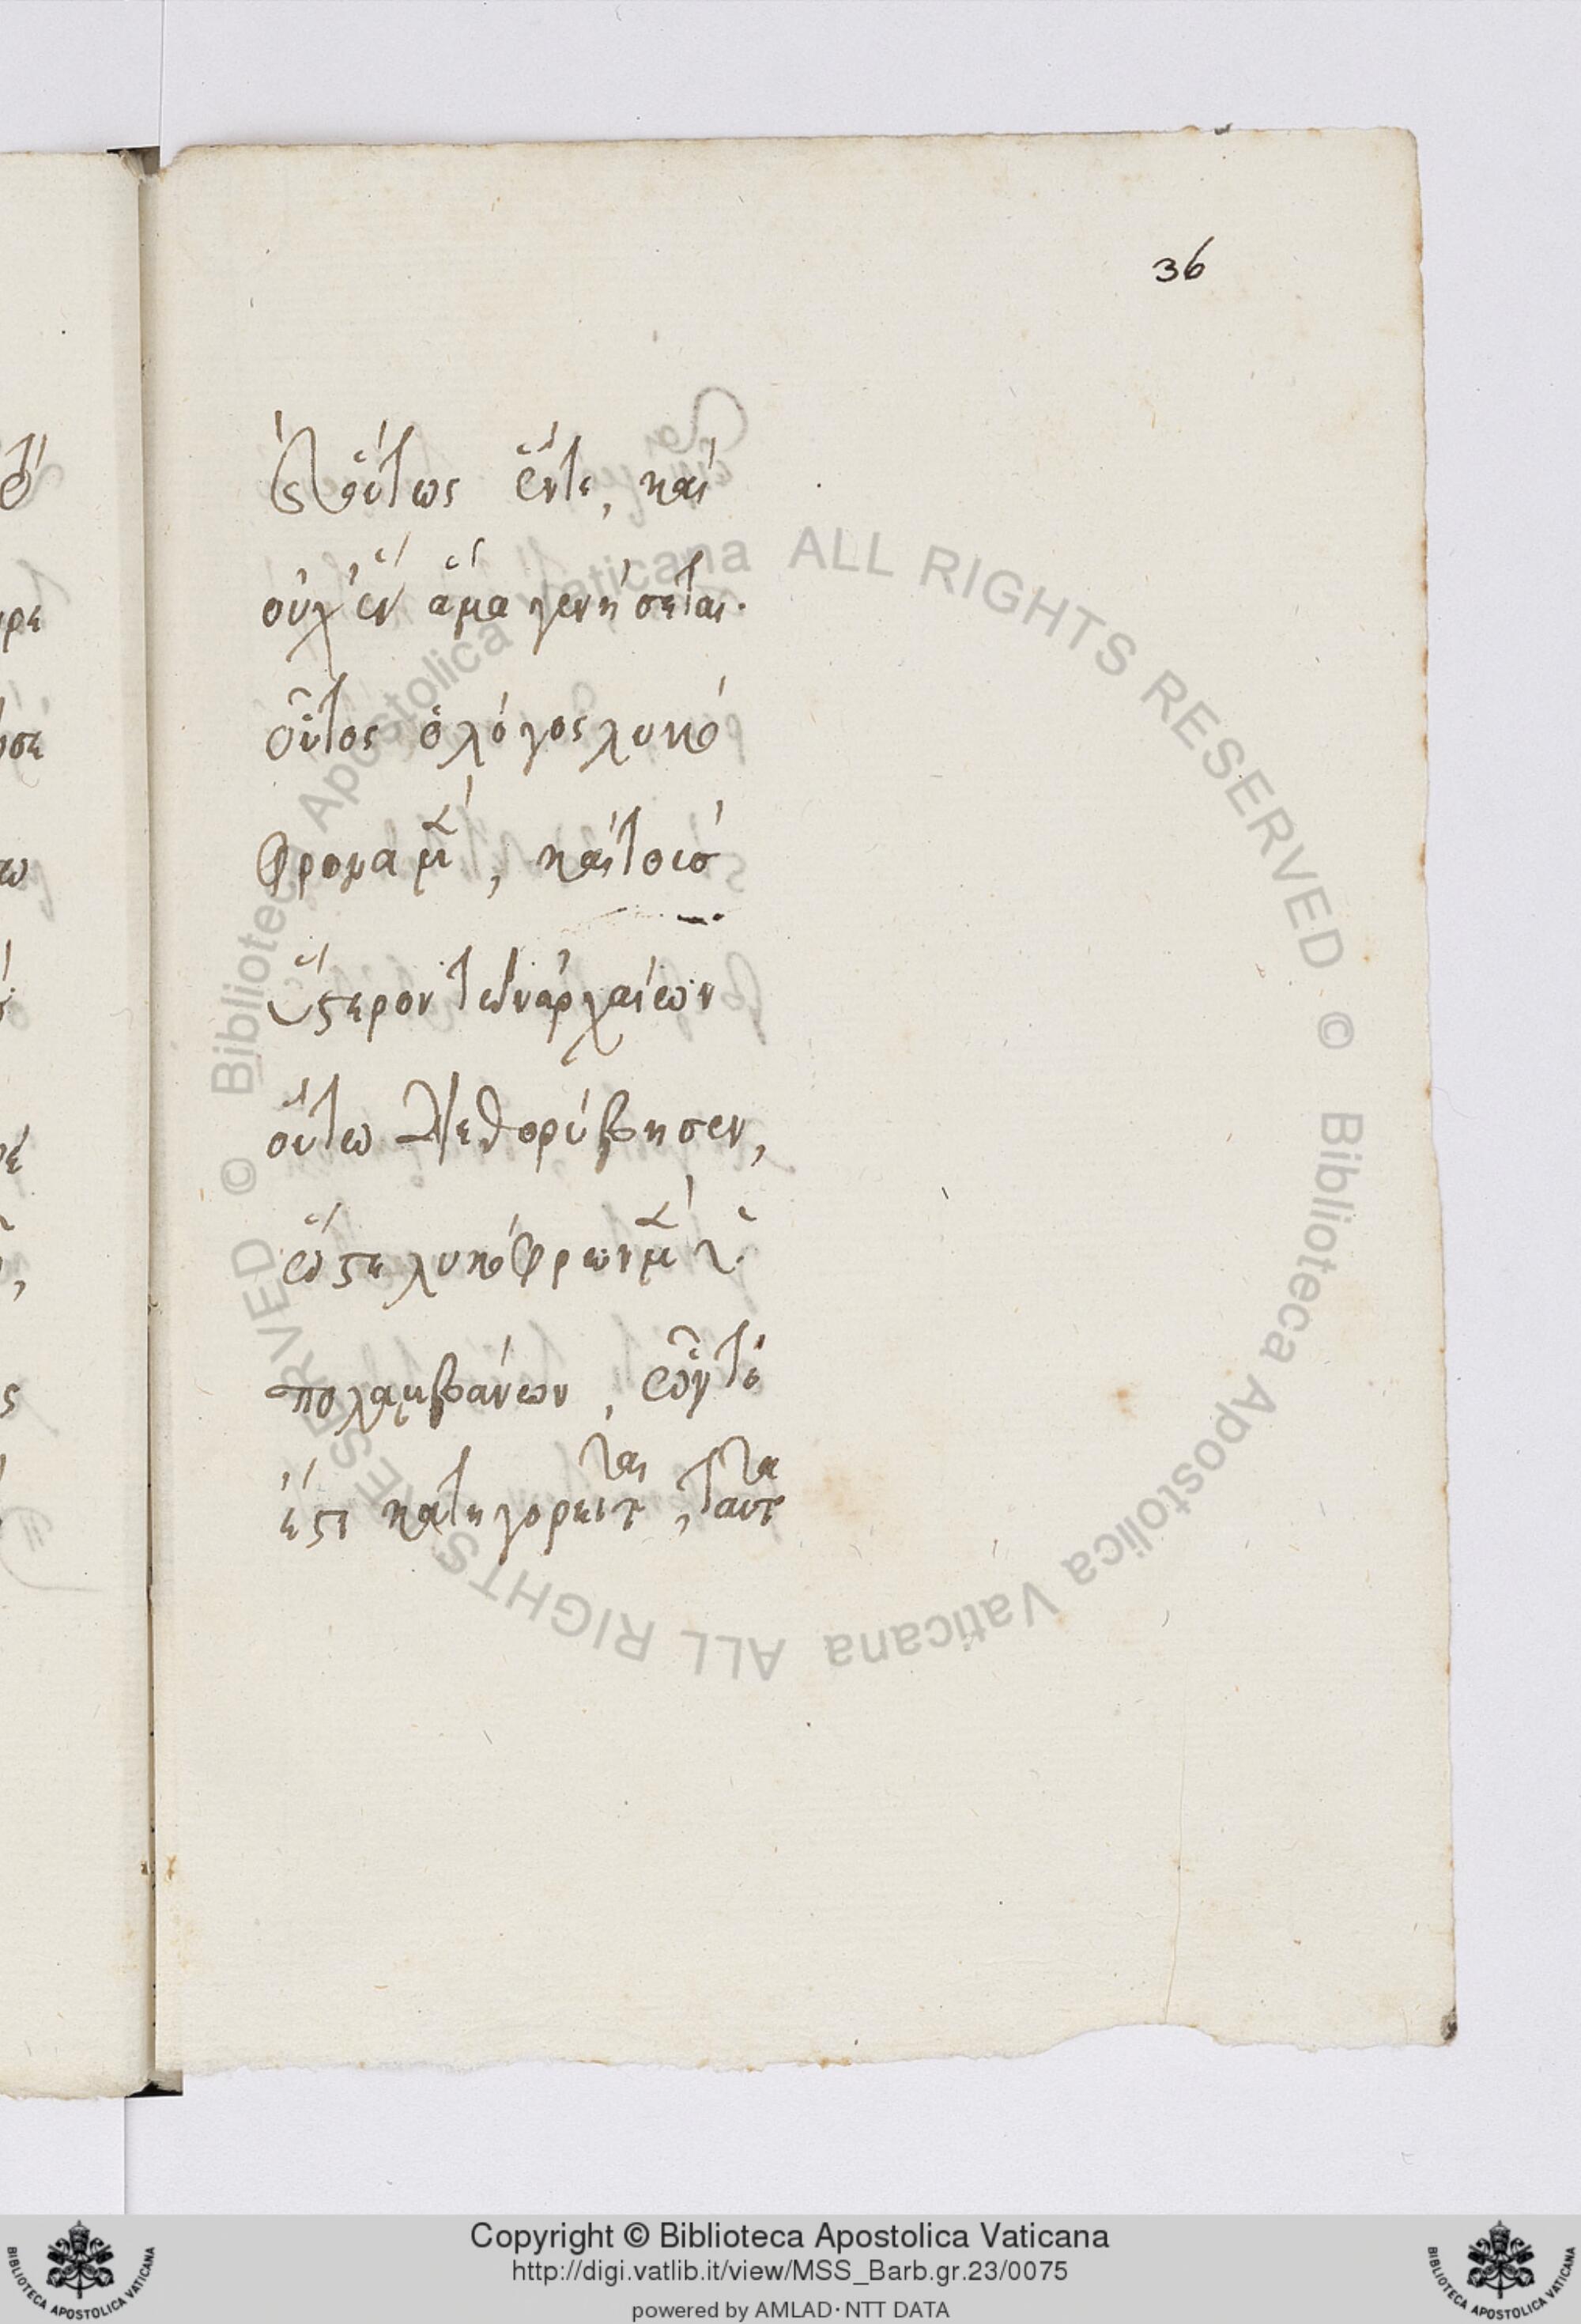 36
ἐς τούτως ἕν τε, καὶ
οὐχ ἓν ἅμα γενήσεται.
οὗτος ὁ λόγος λυκό
φρονα μ(ὲν), καὶ τοὺσ
ὕστερον τῶν ἀρχαίων
οὕτω διεθορύβησεν,
ὥστε λυκόφρων μ(ὲν) ὑ
πολαμβάνων, ὧν τί
ἐστι κατηγορεῖται, ταῦτα
Biblioteca Apostolica Vaticana ALL RIGHTS RESERVED ©
Biblioteca Apostolica Vaticana ALL RIGHTS RESERVED ©
Copyright © Biblioteca Apostolica Vaticana
http://digi.vatlib.it/view/MSS_Barb.gr.23/0075
powered by AMLAD·NTT DATA
BIBLIOTECA APOSTOLICA VATICANA
BIBLIOTECA APOSTOLICA VATICANA